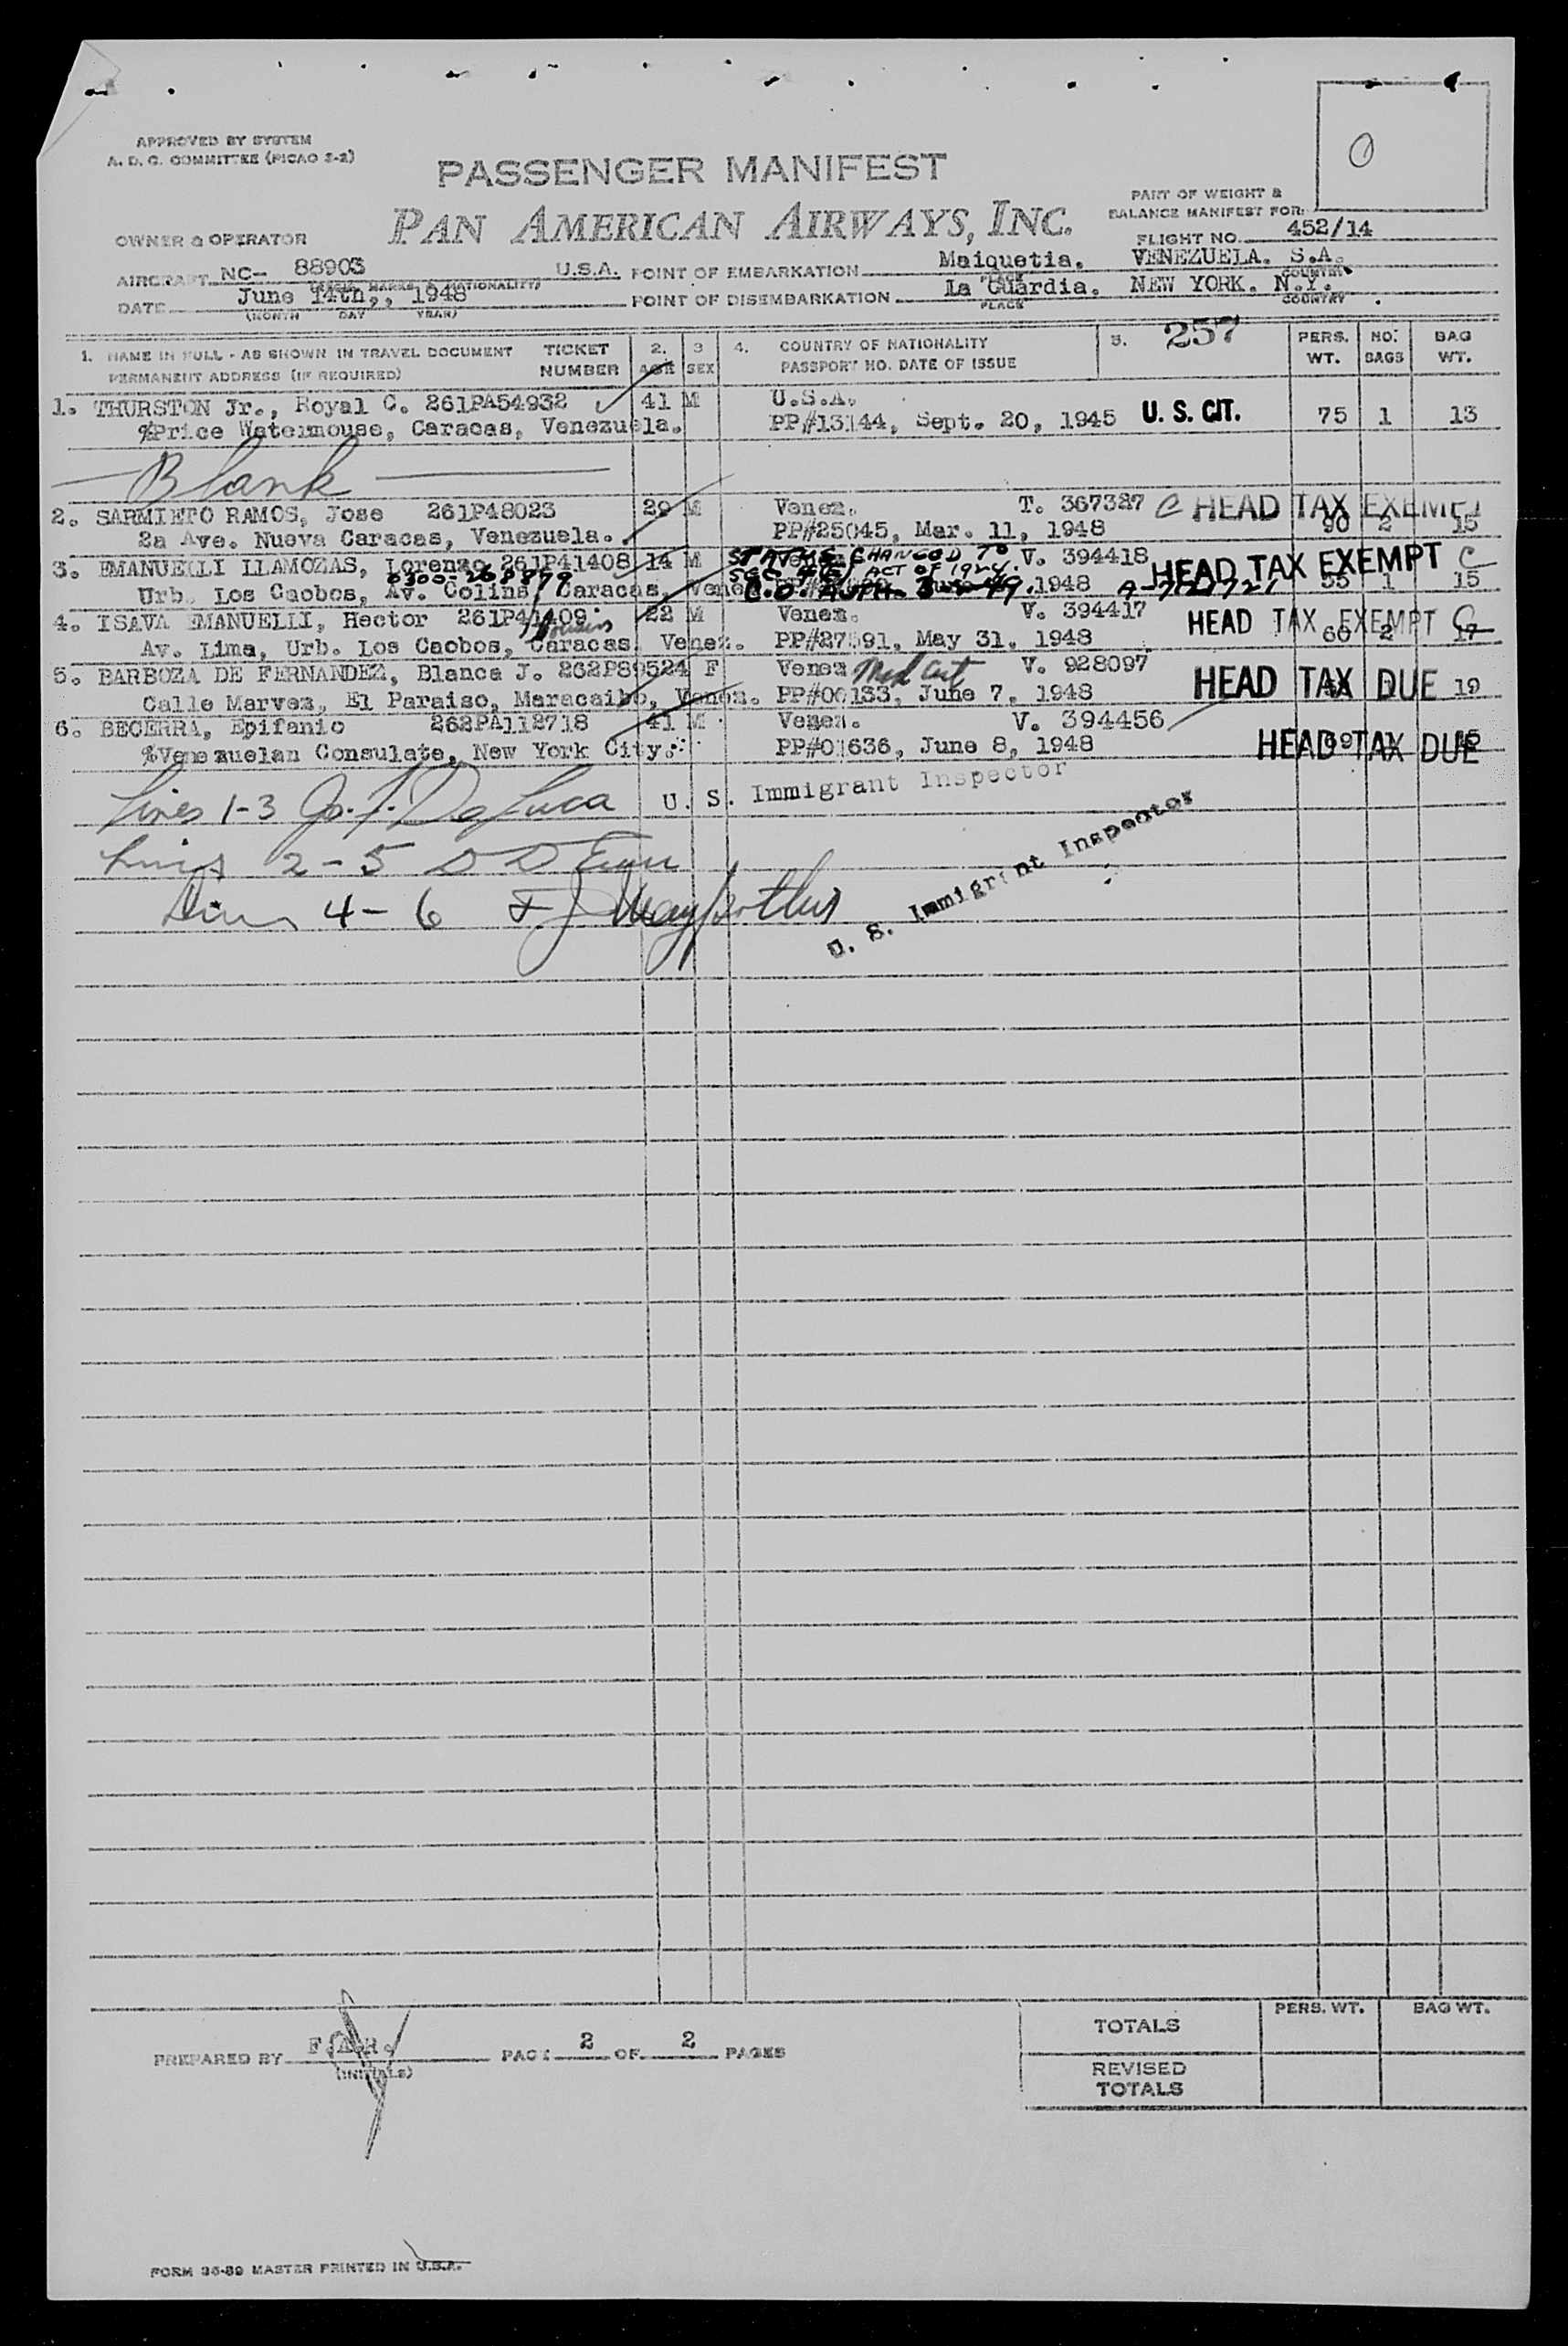 APPROVED BY SYSTEM
A. D. C. COMMITTEE (PICAO 2-2)
O
PASSENGER MANIFEST
PAN AMERICAN AIRWAYS, INC.
PART OF WEIGHT &
BALANCE MANIFEST FOR:
OWNER & OPERATOR
FLIGHT NO. 452/14
AIRCRAFT NC- 88903 U.S.A. POINT OF EMBARKATION Maiquetia. VENEZUELA. S.A.
MARKS & NATIONALITY) PLACE COUNTRY
DATE June 14th,, 1948 POINT OF DISEMBARKATION La Guardia. NEW YORK. N.Y.
(MONTH DAY YEAR) PLACE COUNTRY
1. NAME IN FULL - AS SHOWN IN TRAVEL DOCUMENT TICKET 2. 3 4. COUNTRY OF NATIONALITY 5. 257 PERS. NO. BAG
PERMANENT ADDRESS (IF REQUIRED) NUMBER AGE SEX PASSPORT NO. DATE OF ISSUE WT. BAGS WT.
1. THURSTON Jr., Royal C. 261PA54932 41 M U.S.A.
%Price Watermouse, Caracas, Venezuela. PP#13144, Sept. 20, 1945 U. S. CIT. 75 1 13
Blank
2. SARMIETO RAMOS, Jose 261P48023 29 M Venez. T. 367327 C HEAD TAX EXEMPT
2a Ave. Nueva Caracas, Venezuela. PP#25045, Mar. 11, 1948 90 2 15
3. EMANUELLI LLAMOZAS, Lorenzo 261P41408 14 M STATUS CHANGED TO V. 394418 HEAD TAX EXEMPT C
0300-268879 SEC 4(E) ACT OF 1924.
Urb. Los Caobos, Av. Colins, Caracas, Venez. C.O. AUTH. 1948 A-7121721 55 1 15
4. ISAVA EMANUELLI, Hector 261P41409 22 M Venez. V. 394417 HEAD TAX EXEMPT C
Av. Lima, Urb. Los Caobos, Caracas Venez. PP#27591, May 31, 1948 60 2 17
5. BARBOZA DE FERNANDEZ, Blanca J. 262P89524 F Venez Med Cert V. 928097 HEAD TAX DUE
Calle Marvez, El Paraiso, Maracaibo, Venez. PP#00133, June 7, 1948 19
6. BECERRA, Epifanio 262PA112718 41 M Venez. V. 394456
%Venezuelan Consulate, New York City. PP#01636, June 8, 1948 HEAD TAX DUE 15
Lines 1-3 Jos. F. DeLuca U. S. Immigrant Inspector
Lines 2-5 D D
Lines 4-6 F J U. S. Immigrant Inspector
PREPARED BY F.A.R. PAGE 2 OF 2 PAGES
(INITIALS)
PERS. WT. BAG WT.
TOTALS
REVISED
TOTALS
FORM 36-89 MASTER PRINTED IN U.S.A.